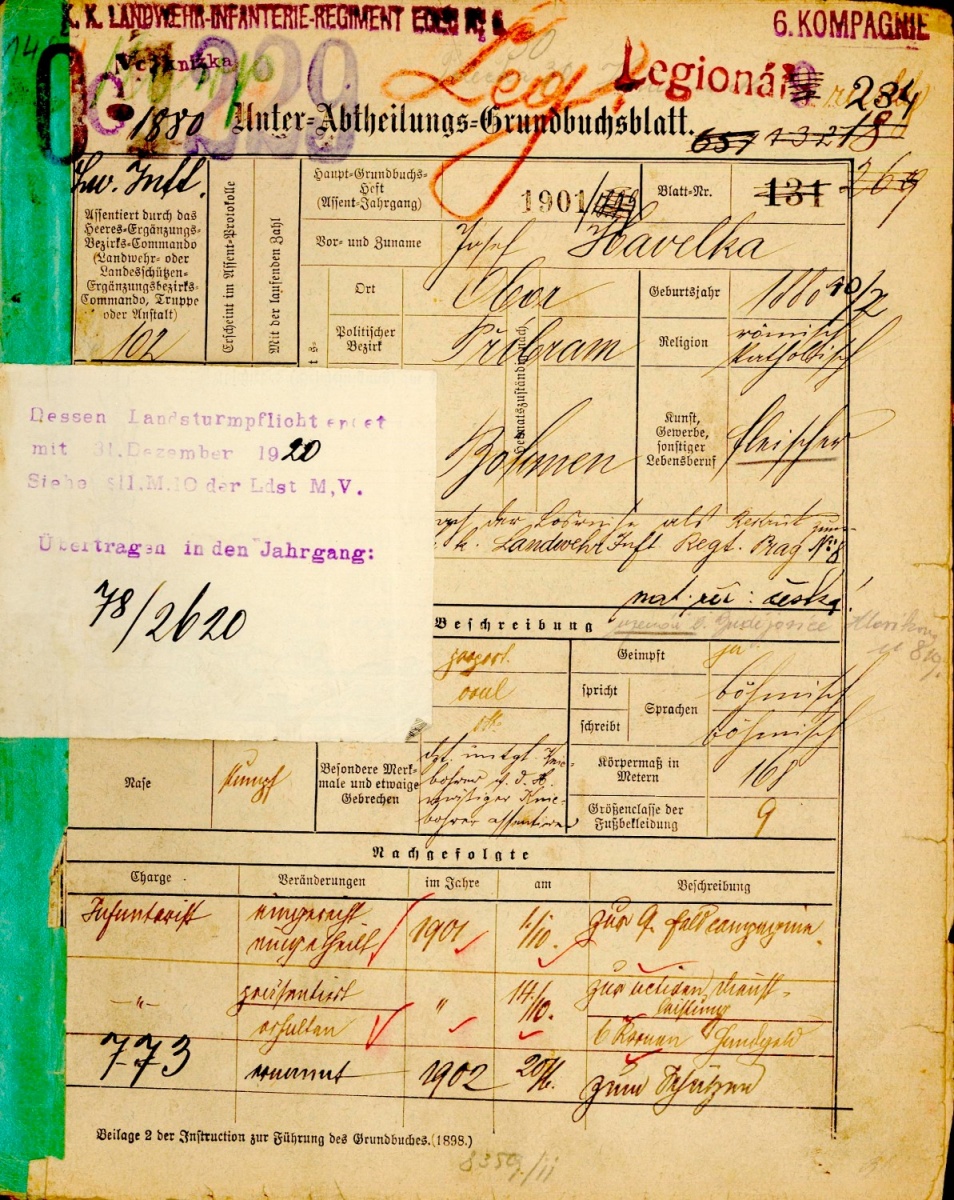 K. K. LANDWEHR-INFANTERIE-REGIMENT
6. KOMPAGNIE
229
Leg.
Legionář
234
1880
Unter-Abtheilungs-Grundbuchsblatt.
657 13218
269
Lw. Inft.
Assentiert durch das
Heeres-Ergänzungs-
Bezirks-Commando
(Landwehr- oder
Landesschützen-
Ergänzungsbezirks-
Commando, Truppe
oder Anstalt)
102
Erscheint im Assent-Protokolle
Mit der laufenden Zahl
Haupt-Grundbuchs-
Heft
(Assent-Jahrgang)
1901
Blatt-Nr.
131
Vor- und Zuname
Josef Havelka
Heimatszuständig nach
Ort
Obor
Geburtsjahr
1880 10/2
Politischer
Bezirk
Přibram
Religion
römisch
katholisch
Böhmen
Kunst,
Gewerbe,
sonstiger
Lebensberuf
Fleischer
der Losreihe als Rekrut zum
k. Landwehr Inft Regt. Prag № 8
nat. řeč: česká!
Dessen Landsturmpflicht endet
mit 31.Dezember 1920
Siehe §11.M.10 der Ldst M,V.
Übertragen in den Jahrgang:
78/2620
Beschreibung
Geimpft
ja
oval
spricht
schreibt
Sprachen
böhmisch
böhmisch
Nase
stumpf
Besondere Merk-
male und etwaige
Gebrechen
Körpermaß in
Metern
168
Größenclasse der
Fußbekleidung
9
Nachgefolgte
Charge
Veränderungen
im Jahre
am
Beschreibung
Infanterist
eingerückt
eingetheilt
1901
1/10.
zur 9. Feldcompagnie.
-"-
präsentiert
"
14/10.
zur activen Dienst-
leistung
erhalten
6 Kronen Handgeld
773
ernannt
1902
20/6.
zum Schützen
Beilage 2 der Instruction zur Führung des Grundbuches. (1898.)
8359/ii